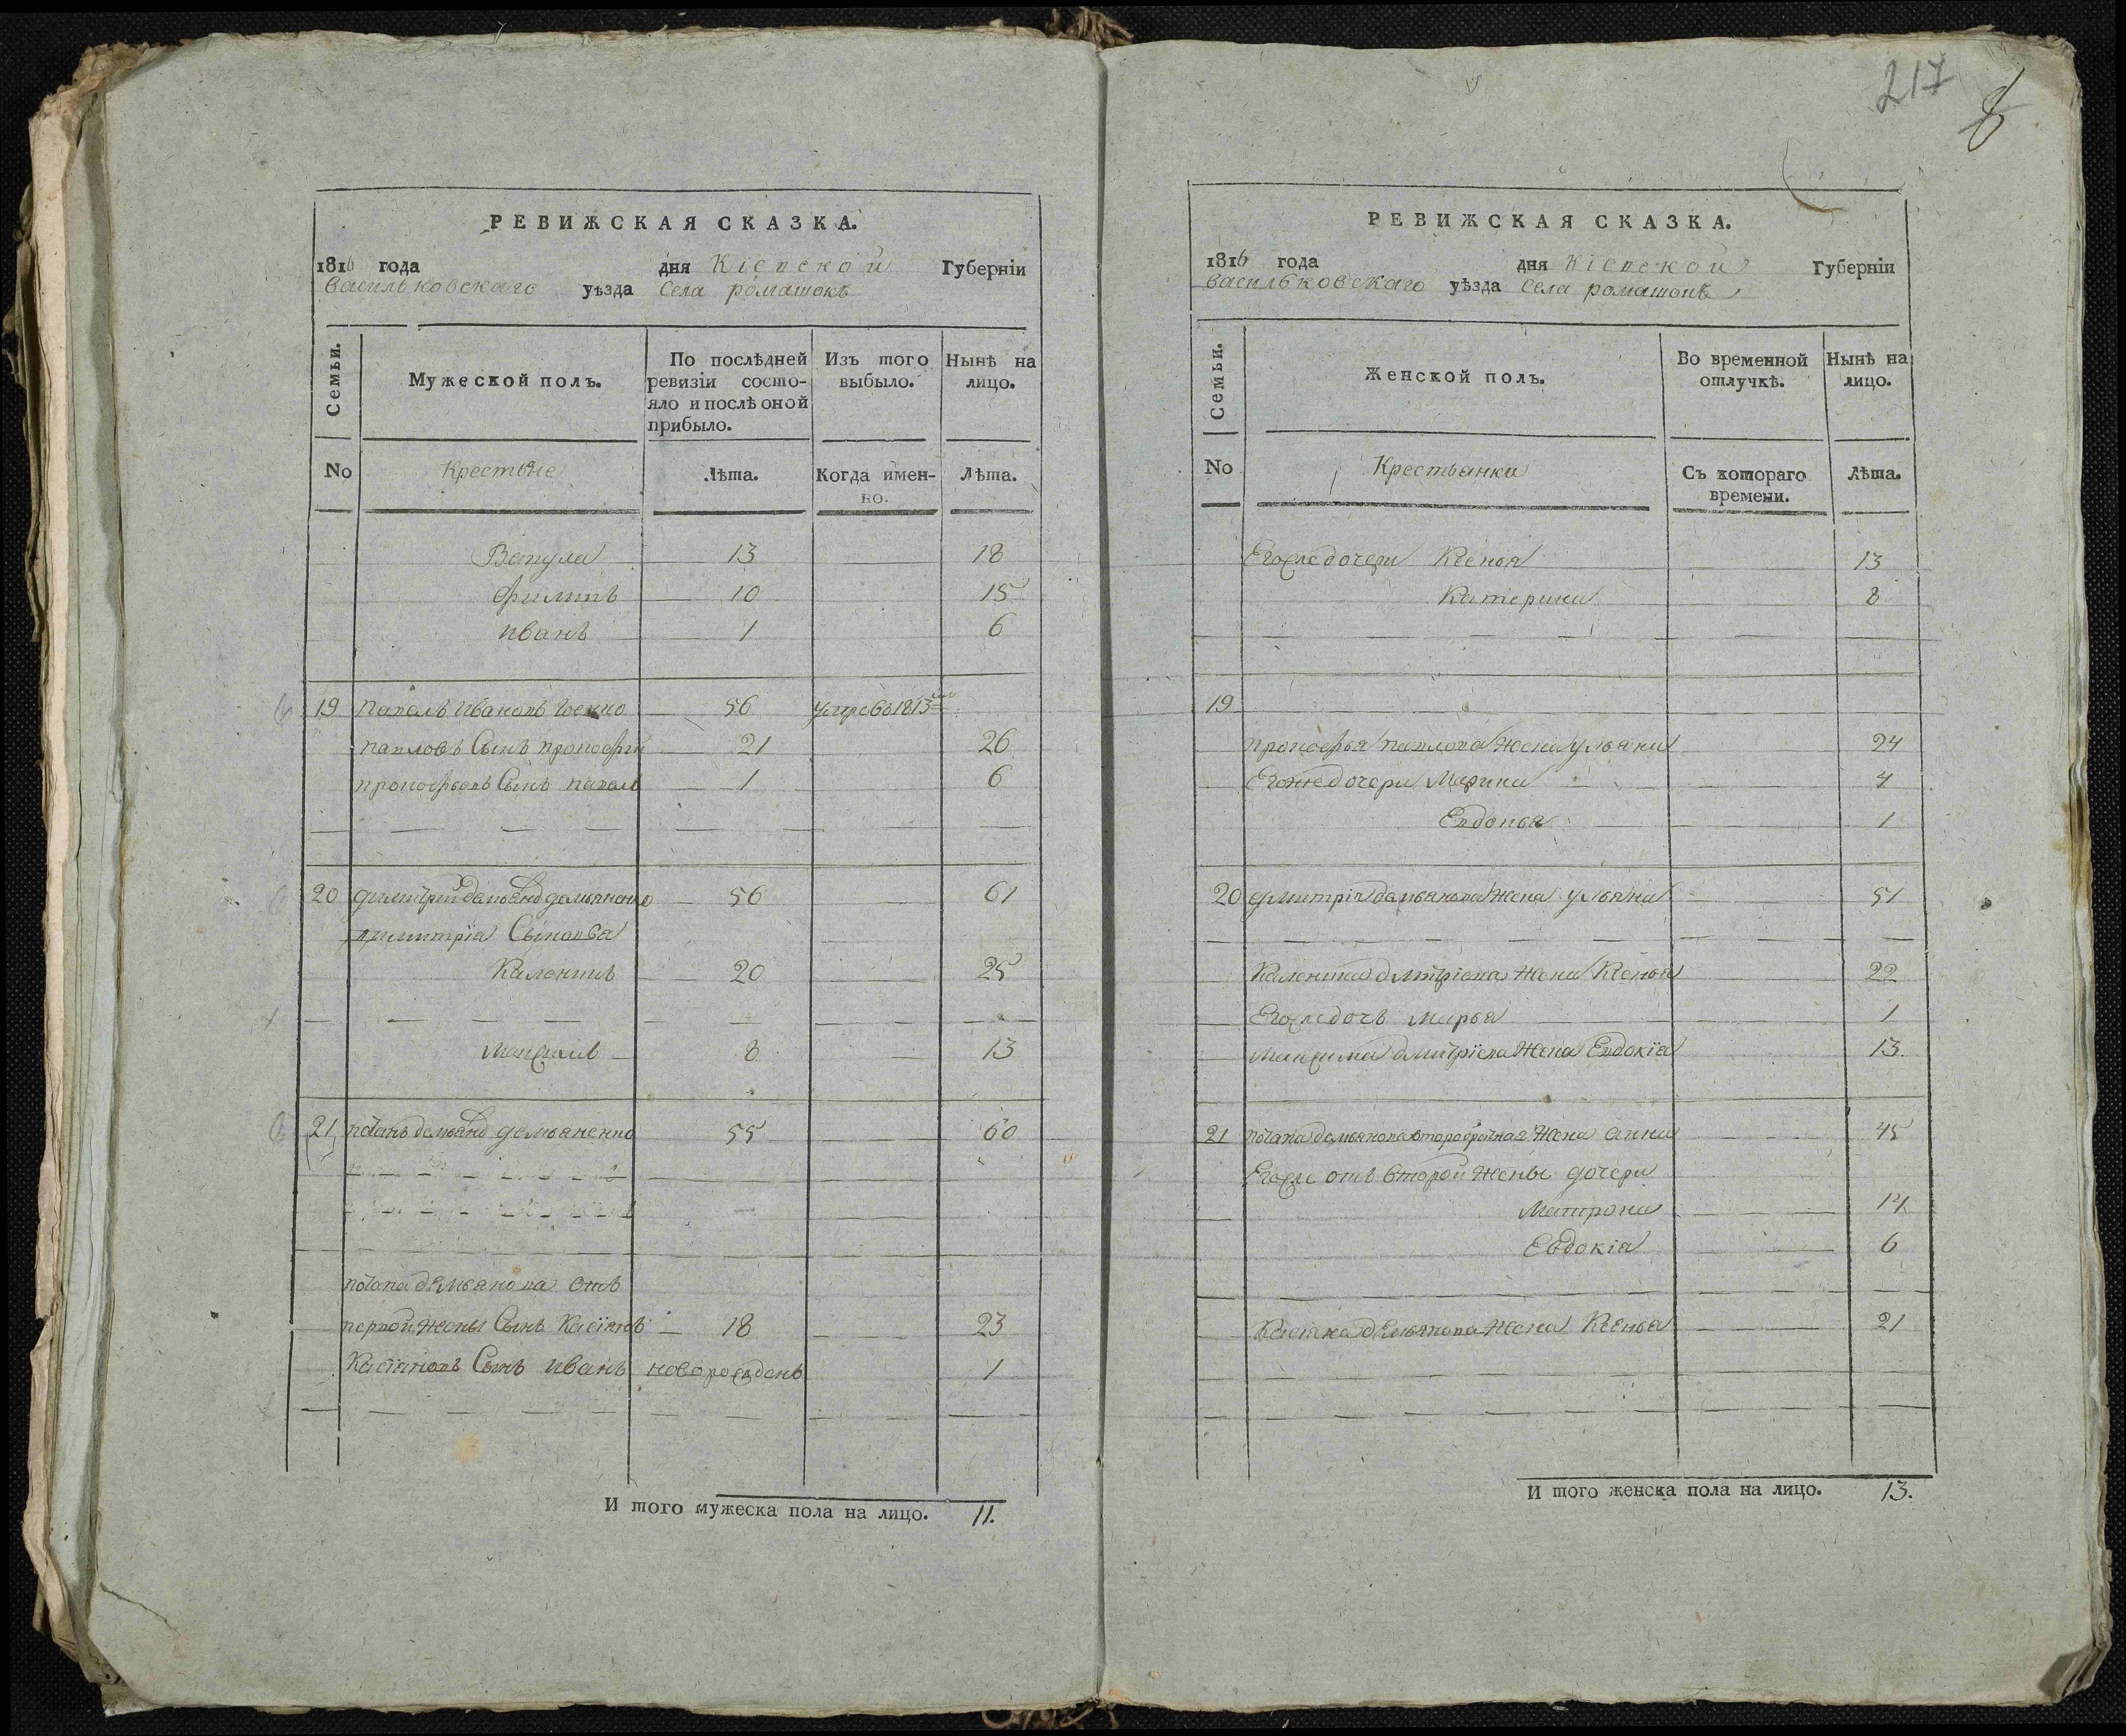 217
8
РЕВИЖСКАЯ СКАЗКА.
1816 года дня Кіевской Губерніи
Васильковскаго уѣзда Села ромашокъ
Семьи. Мужеской полъ. По послѣдней ревизіи состояло и послѣ оной прибыло. Изъ того выбыло. Нынѣ на лицо.
No Крестьяне Лѣта. Когда именно. Лѣта.
Вакула 13 18
Филипъ 10 15
иванъ 1 6
19 павелъ ивановъ 56 умре въ 1813
павловъ Сынъ прокофій 21 26
прокофьевъ Сынъ павелъ 1 6
20 димитрій демьяненко 56 61
димитрія Сыновья
Калениκъ 20 25
Максимъ 8 13
21 потапъ демьяненко 55 60
потапа демьянова отъ
первой жены Сынъ Касіянъ 18 23
Касіяновъ Сынъ иванъ новорожденъ 1
И того мужеска пола на лицо. 11.
РЕВИЖСКАЯ СКАЗКА.
1816 года дня Кіевской Губерніи
Васильковскаго уѣзда Села ромашокъ
Семьи. Женской полъ. Во временной отлучкѣ. Нынѣ на лицо.
No Крестьянки Съ котораго времени. Лѣта.
Егоже дочери Ксенья 13
Катерина 8
19
прокофья павлова жена ульяна 24
Егоже дочери Марина 4
Евдокья 1
20 дмитрія демьянова жена ульяна 51
дмитріева жена Ксенья 22
Егоже дочь марья 1
максима дмитріева жена Евдокія 13
21 потапа демьянова второбрачная жена анна 45
Егоже отъ второй жены дочери
Матрона 14
Евдокія 6
жена Ксенья 21
И того женска пола на лицо. 13.